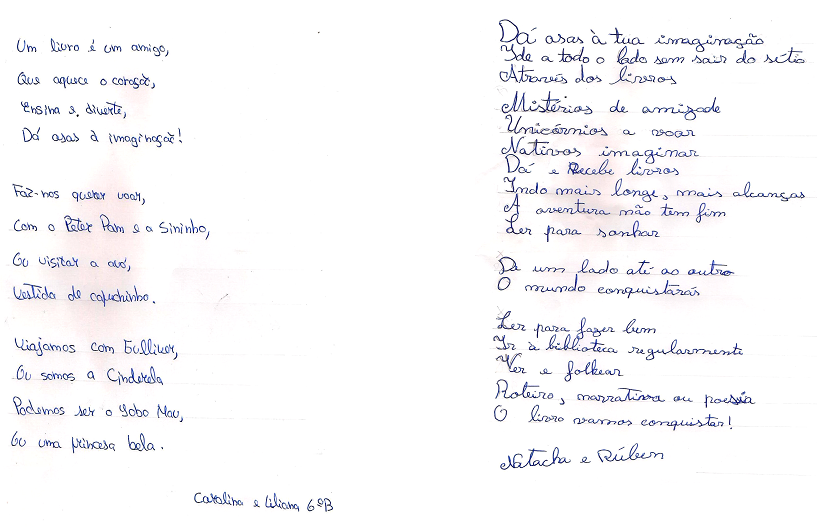 Um livro é um amigo,
Que aquece o coração,
Ensina e diverte,
Dá asas à imaginação!
Faz-nos querer voar,
Com o Peter Pam e a Sininho,
Ou visitar a avó,
Vestida de capuchinho.
Viajamos com Gulliver,
Ou somos a Cinderela
Podemos ser o Lobo Mau,
Ou uma princesa bela.
Carolina e Liliana 6ºB
Dá asas à tua imaginação
Ide a todo o lado sem sair do sítio
Através dos livros
Mistérios de amizade
Unicórnios a voar
Nativos imaginar
Dá e Recebe livros
Indo mais longe, mais alcanças
A aventura não tem fim
Ler para sonhar
De um lado até ao outro
O mundo conquistarás
Ler para fazer bem
Ir à biblioteca regularmente
Ver e folhear
Roteiro, narrativa ou poesia
O livro vamos conquistar!
Natacha e Rúben